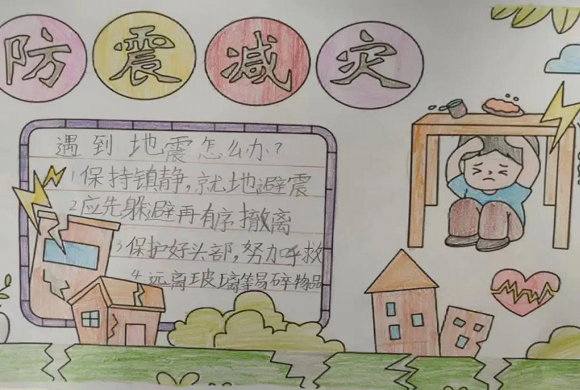 防震减灾
遇到地震怎么办?
1保持镇静,就地避震
2应先躲避再有序撤离
3保护好头部,努力呼救
4远离玻璃等易碎物品